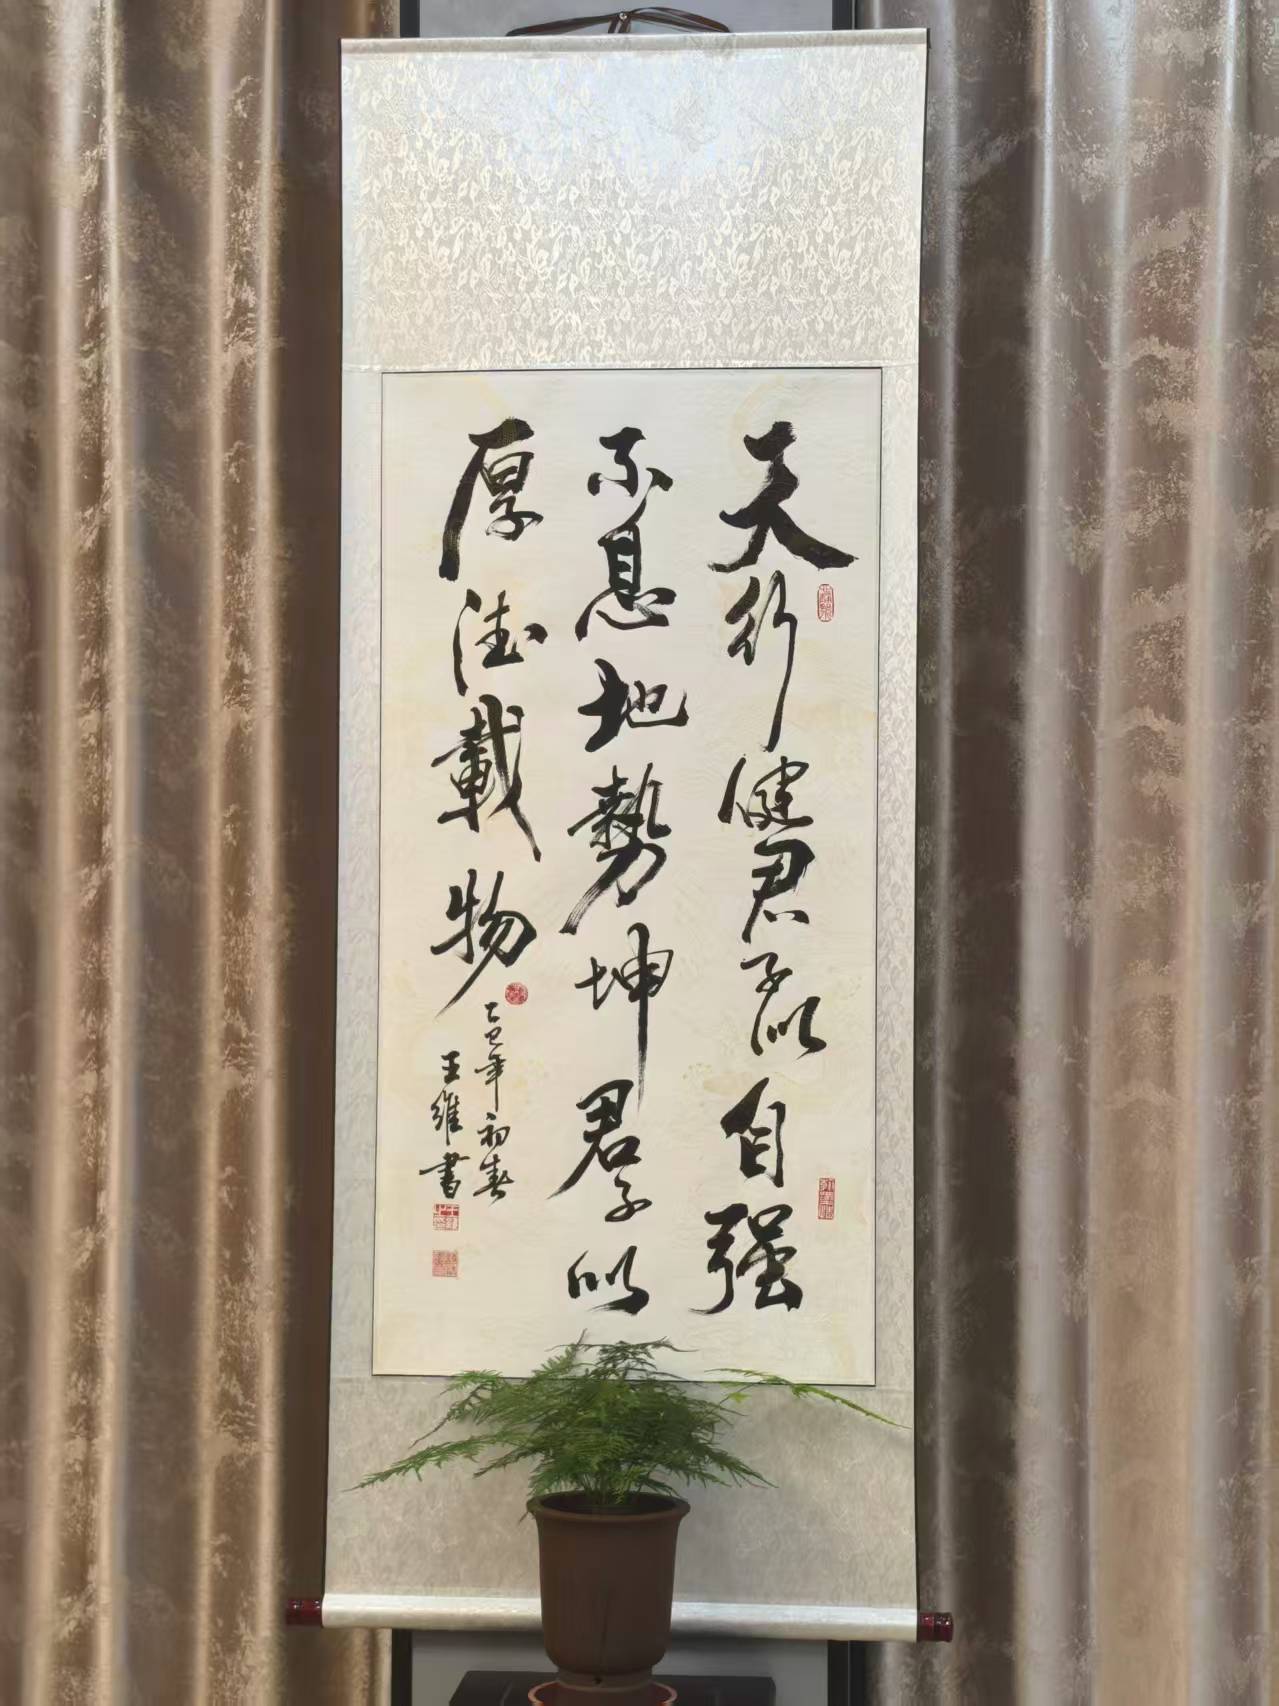 天行健君子以自强
不息地势坤君子以
厚德載物
乙巳年初春
王維書